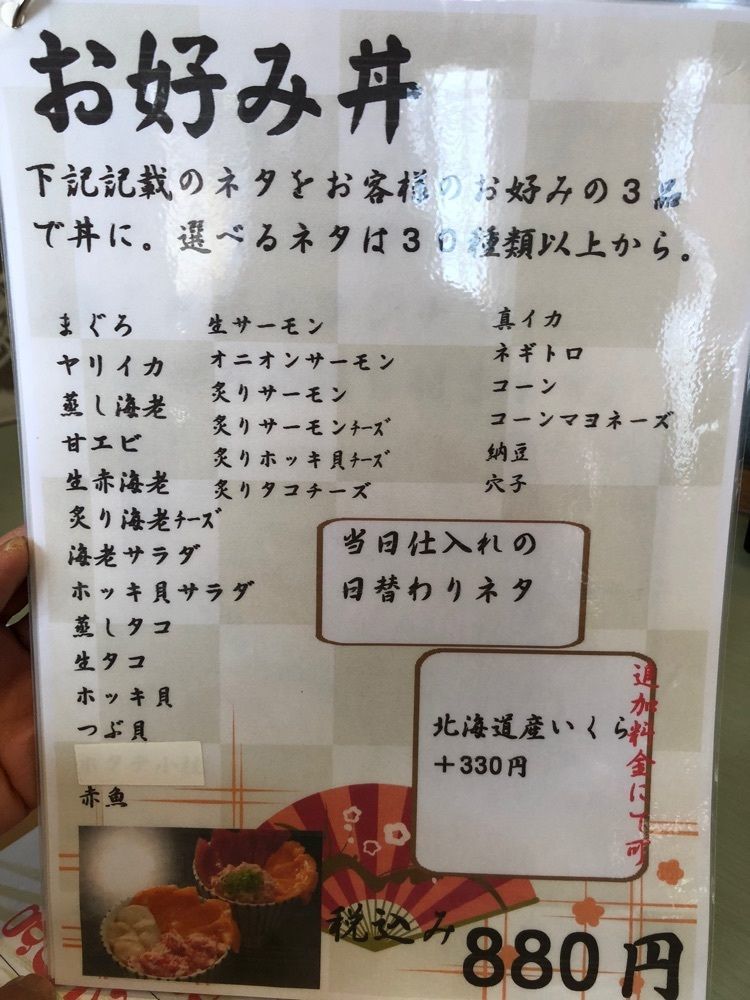 お好み丼
下記記載のネタをお客様のお好みの3品
で丼に。選べるネタは30種類以上から。
まぐろ
ヤリイカ
蒸し海老
甘エビ
生赤海老
炙り海老チーズ
海老サラダ
ホッキ貝サラダ
蒸しタコ
生タコ
ホッキ貝
つぶ貝
赤魚
生サーモン
オニオンサーモン
炙りサーモン
炙りサーモンチーズ
炙りホッキ貝チーズ
炙りタコチーズ
真イカ
ネギトロ
コーン
コーンマヨネーズ
納豆
穴子
当日仕入れの
日替わりネタ
北海道産いくら
+330円
追加料金にて可
税込み 880円